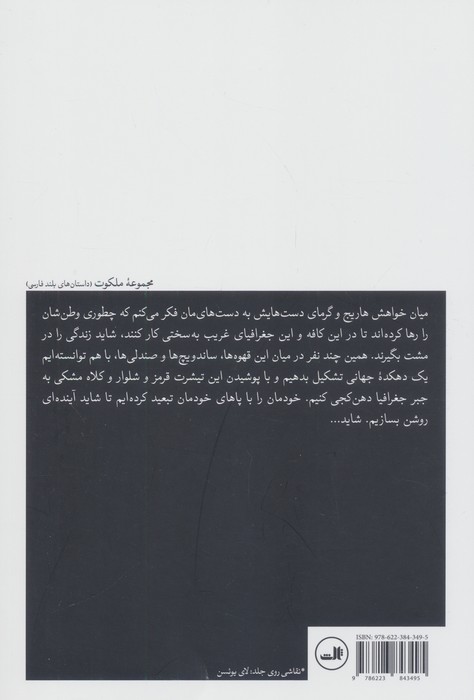 مجموعهٔ ملکوت (داستان‌های بلند فارسی)
میان خواهش هاریج و گرمای دست‌هایش به دست‌های‌مان فکر می‌کنم که چطوری وطن‌شان
را رها کرده‌اند تا در این کافه و این جغرافیای غریب به‌سختی کار کنند، شاید زندگی را در
مشت بگیرند. همین چند نفر در میان این قهوه‌ها، ساندویچ‌ها و صندلی‌ها، با هم توانسته‌ایم
یک دهکدهٔ جهانی تشکیل بدهیم و با پوشیدن این تیشرت قرمز و شلوار و کلاه مشکی به
جبر جغرافیا دهن‌کجی کنیم. خودمان را با پاهای خودمان تبعید کرده‌ایم تا شاید آینده‌ای
روشن بسازیم. شاید...
ISBN: 978-622-384-349-5
9 786223 843495
ثالث
*نقاشی روی جلد: لای یوتسن